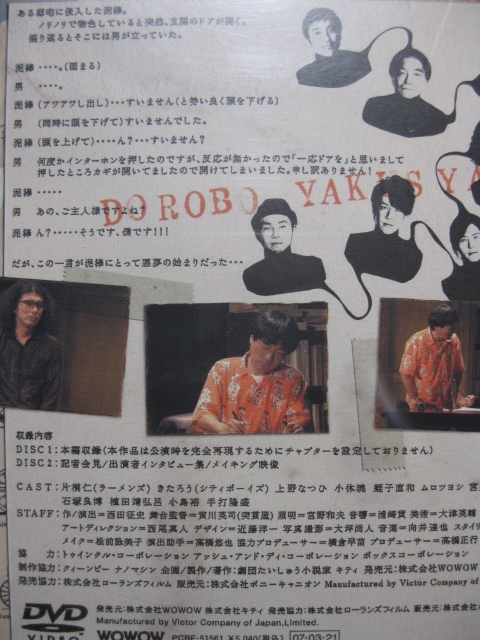 ある邸宅に侵入した泥棒。
ノリノリで物色していると突然、玄関のドアが開く。
振り返るとそこには男が立っていた。
泥棒 ‥‥。(固まる)
男 ‥‥。
泥棒 (アワアワし出し)‥‥すいません(と勢い良く頭を下げる)
男 (同時に頭を下げて)すいませんでした。
泥棒 (頭を上げて)‥‥ん?‥‥すいません?
男 何度かインターホンを押したのですが、反応が無かったので「一応ドアを」と思いまして
押したところカギが開いてましたので開けてしまいました。申し訳ありません!
泥棒 ‥‥‥
男 あの、ご主人様ですよね?
DOROBO YAKUSYA
泥棒 ん?‥‥‥そうです、僕です!!!
だが、この一言が泥棒にとって悪夢の始まりだった‥‥
収録内容
DISC1:本編収録(本作品は公演時を完全再現するためにチャプターを設定しておりません)
DISC2:記者会見/出演者インタビュー集/メイキング映像
CAST:片桐仁(ラーメンズ) きたろう(シティボーイズ) 上野なつひ 小休憩 蛭子直和 ムロツヨシ 宮
石塚良博 植田靖弘呂 小島裕 手打隆盛
STAFF:作/演出=西田征史 舞台監督=寅川英司(突貫屋) 照明=宮野和夫 音響=浦崎貴 美術=大津英輔
アートディレクション=西尾真人 デザイン=近藤洋一 写真撮影=大坪尚人 音楽=向井達也 スタイリ
メイク=松前詠美子 演出助手=高橋悠也 協力プロデューサー=横倉早苗 プロデューサー=高橋正行
協 力:トゥインクル・コーポレーション アッシュ・アンド・ディ・コーポレーション ボックスコーポレーション
制作協力:クィーンビー ナノマシン 企画/製作/著作:劇団たいしゅう小説家 キティ 発売元:株式会社WOWOW
発売協力:株式会社ローランズフィルム 販売元:株式会社ポニーキャニオン Manufactured by Victor Company of
DVD VIDEO
発売元:株式会社WOWOW 株式会社キティ 発売協力:株式会社ローランズフィルム 販売元:株式
Manufactured by Victor Company of Japan,Limited.
WOWOW PCBE-51561 ¥5,040(税込) 07・03・21